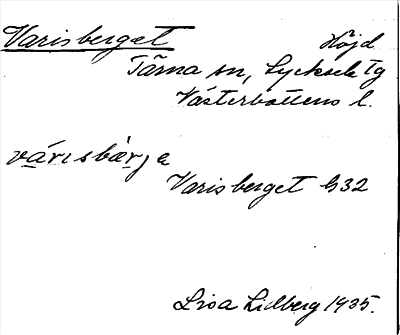 Varisberget Höjd
Tärna sn, Lycksele tg
Västerbottens l.
várɩsbàrjа
Varisberget h32
Lisa Lidberg 1935.